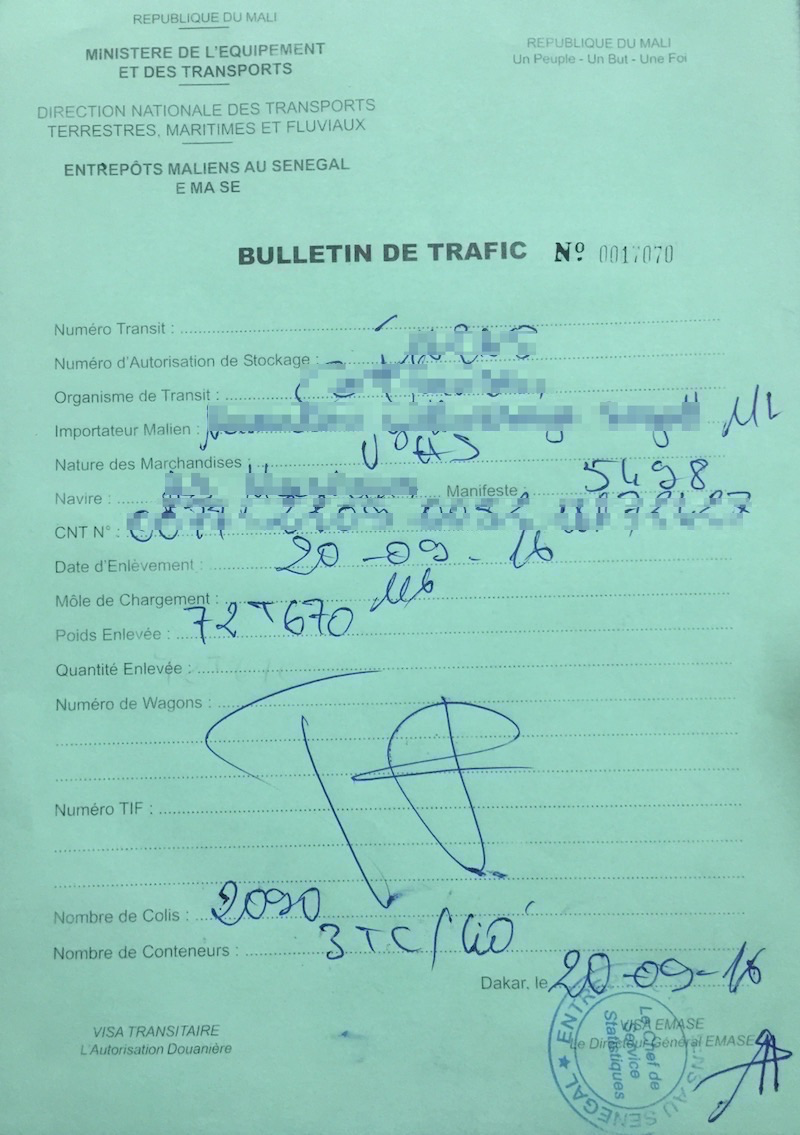 REPUBLIQUE DU MALI
MINISTERE DE L'EQUIPEMENT
ET DES TRANSPORTS
REPUBLIQUE DU MALI
Un Peuple - Un But - Une Foi
DIRECTION NATIONALE DES TRANSPORTS
TERRESTRES, MARITIMES ET FLUVIAUX
ENTREPÔTS MALIENS AU SENEGAL
E MA SE
BULLETIN DE TRAFIC Nº 0017070
Numéro Transit :
Numéro d'Autorisation de Stockage :
Organisme de Transit :
Importateur Malien :
Nature des Marchandises :
Navire : Manifeste : 5498
CNT N° :
Date d'Enlèvement : 20-09-16
Môle de Chargement :
Poids Enlevée : 72T670
Quantité Enlevée :
Numéro de Wagons :
Numéro TIF :
Nombre de Colis : 2090
Nombre de Conteneurs : 3TC/40'
Dakar, le 20-09-16
VISA TRANSITAIRE
L'Autorisation Douanière
VISA EMASE
Le Directeur Général EMASE
Le Chef de
Service
Statistiques